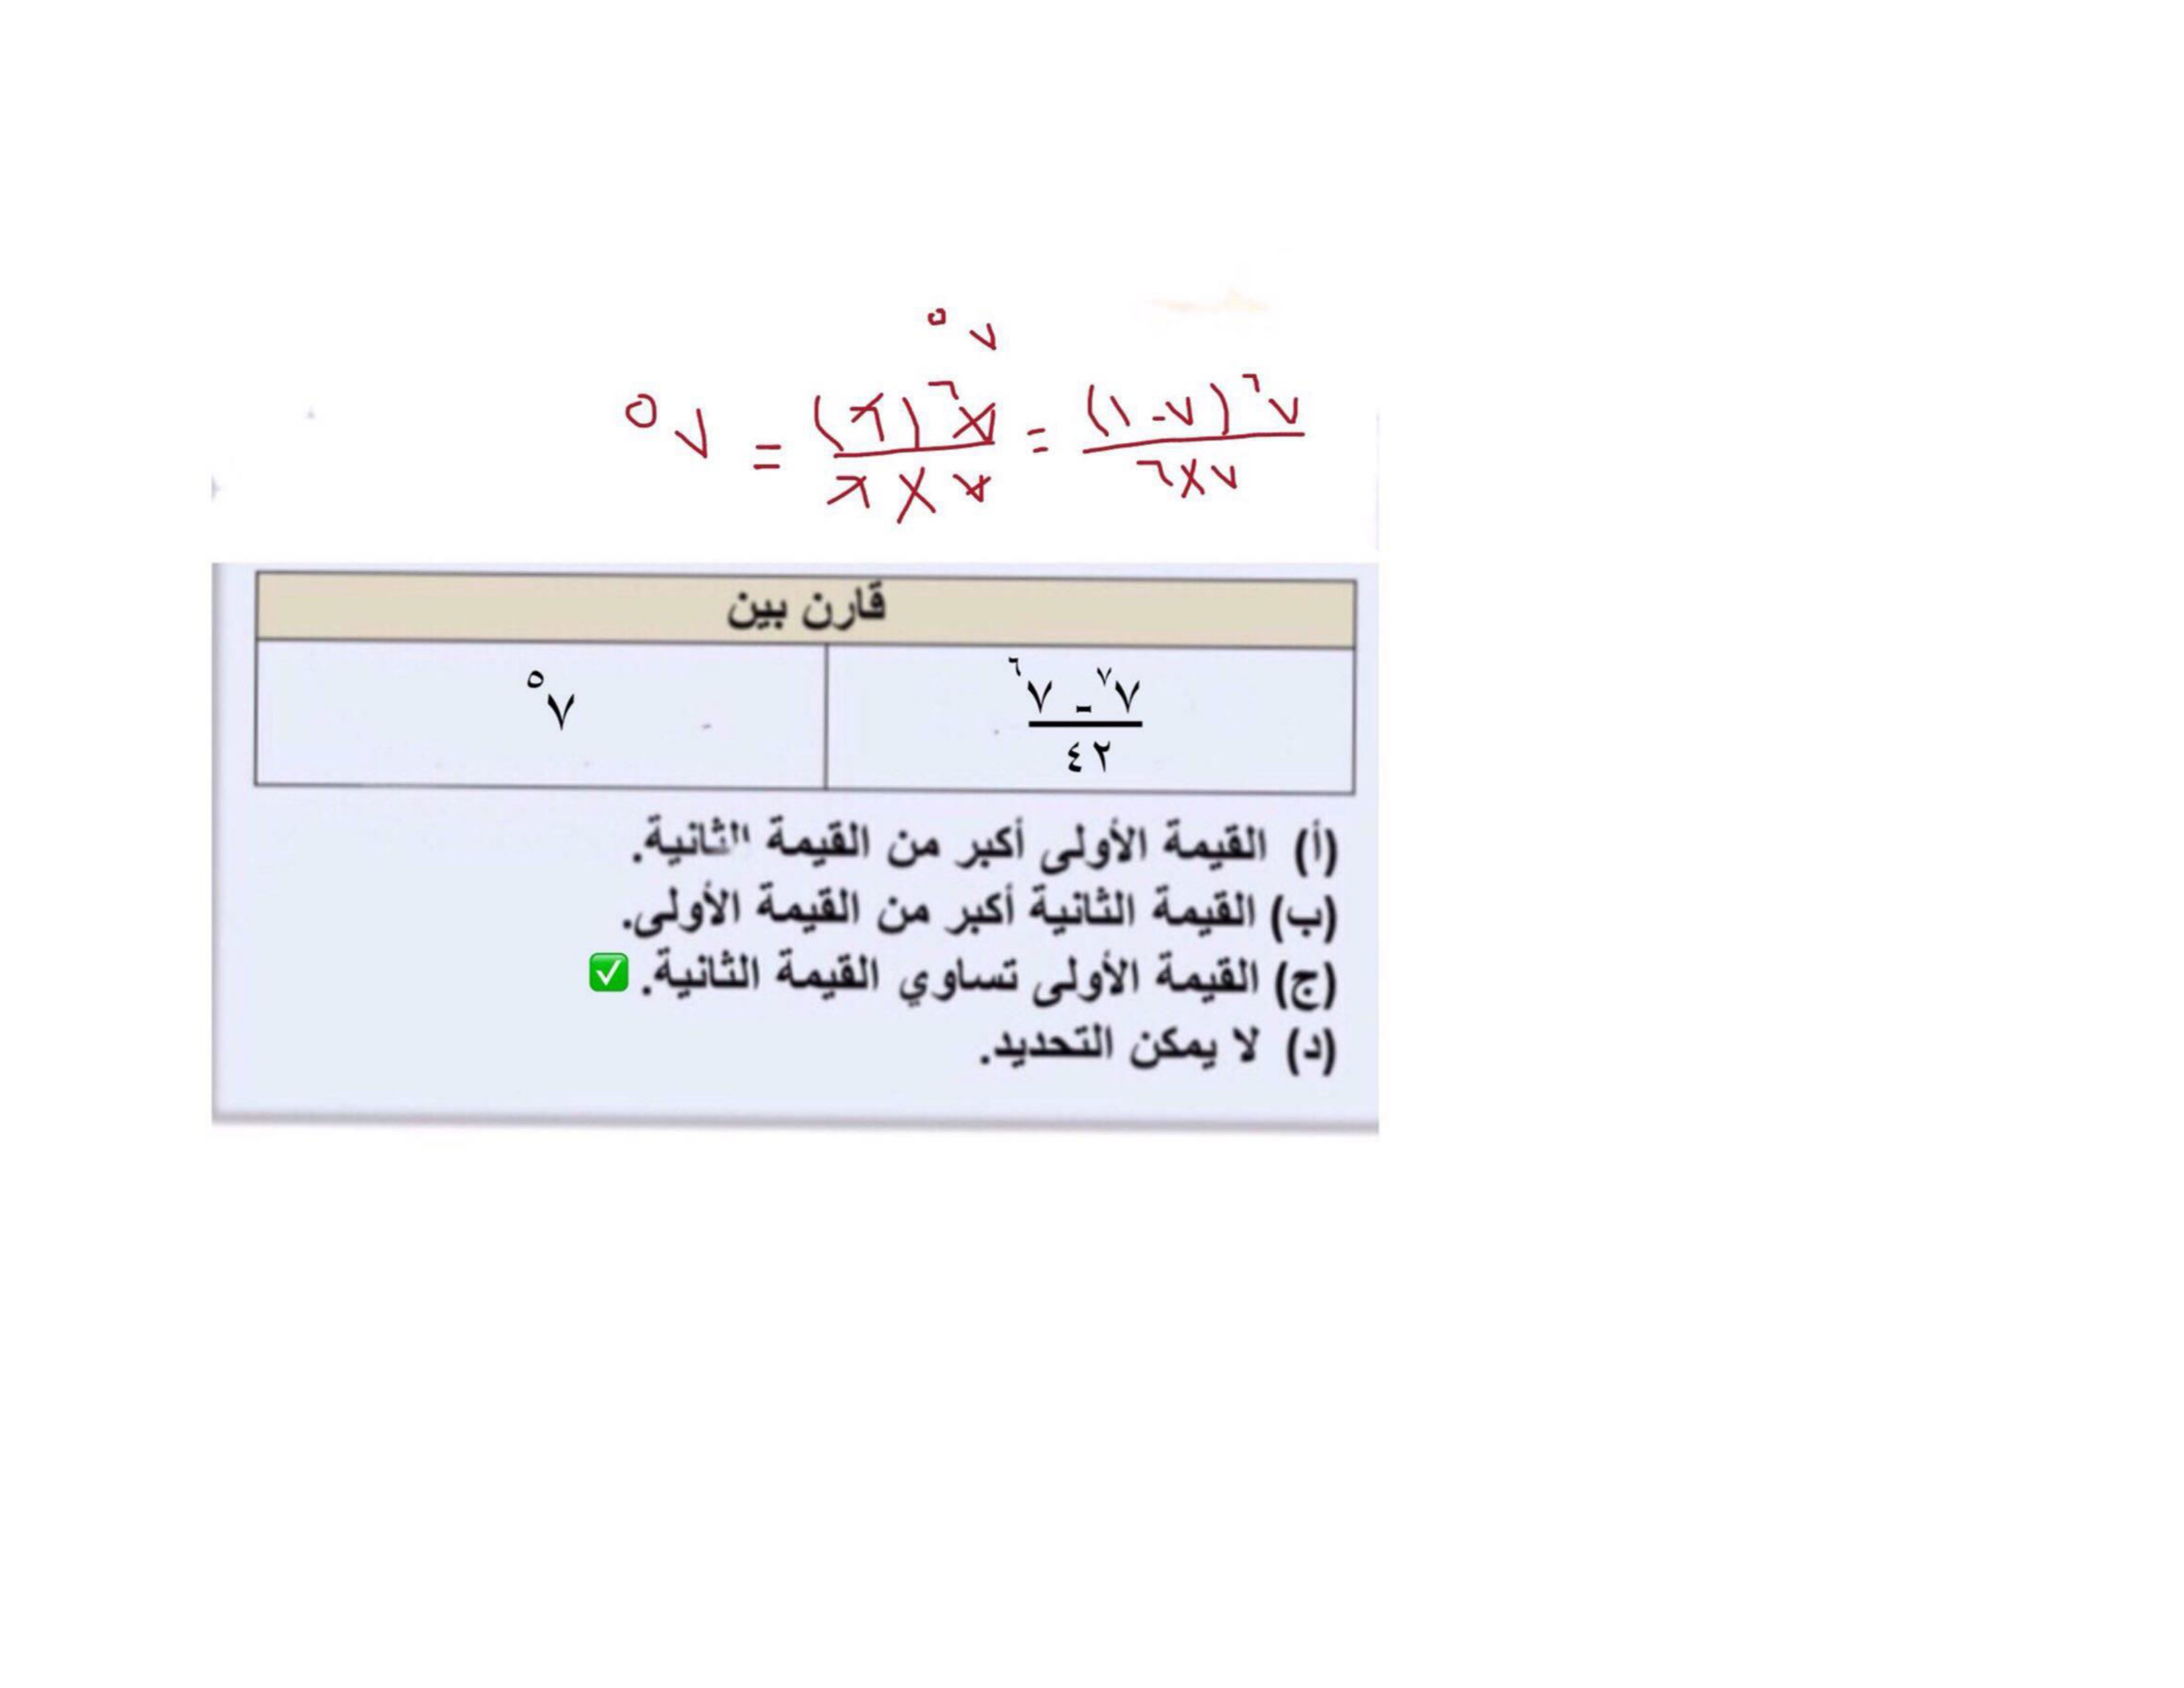 ٥٧
٧٦(٧-١)/٧×٦ = ٧٦(٦)/٧×٦ = ٧٥
قارن بين
٧٧ - ٧٦
٤٢
٧٥
(أ) القيمة الأولى أكبر من القيمة الثانية.
(ب) القيمة الثانية أكبر من القيمة الأولى.
(ج) القيمة الأولى تساوي القيمة الثانية. ✅
(د) لا يمكن التحديد.